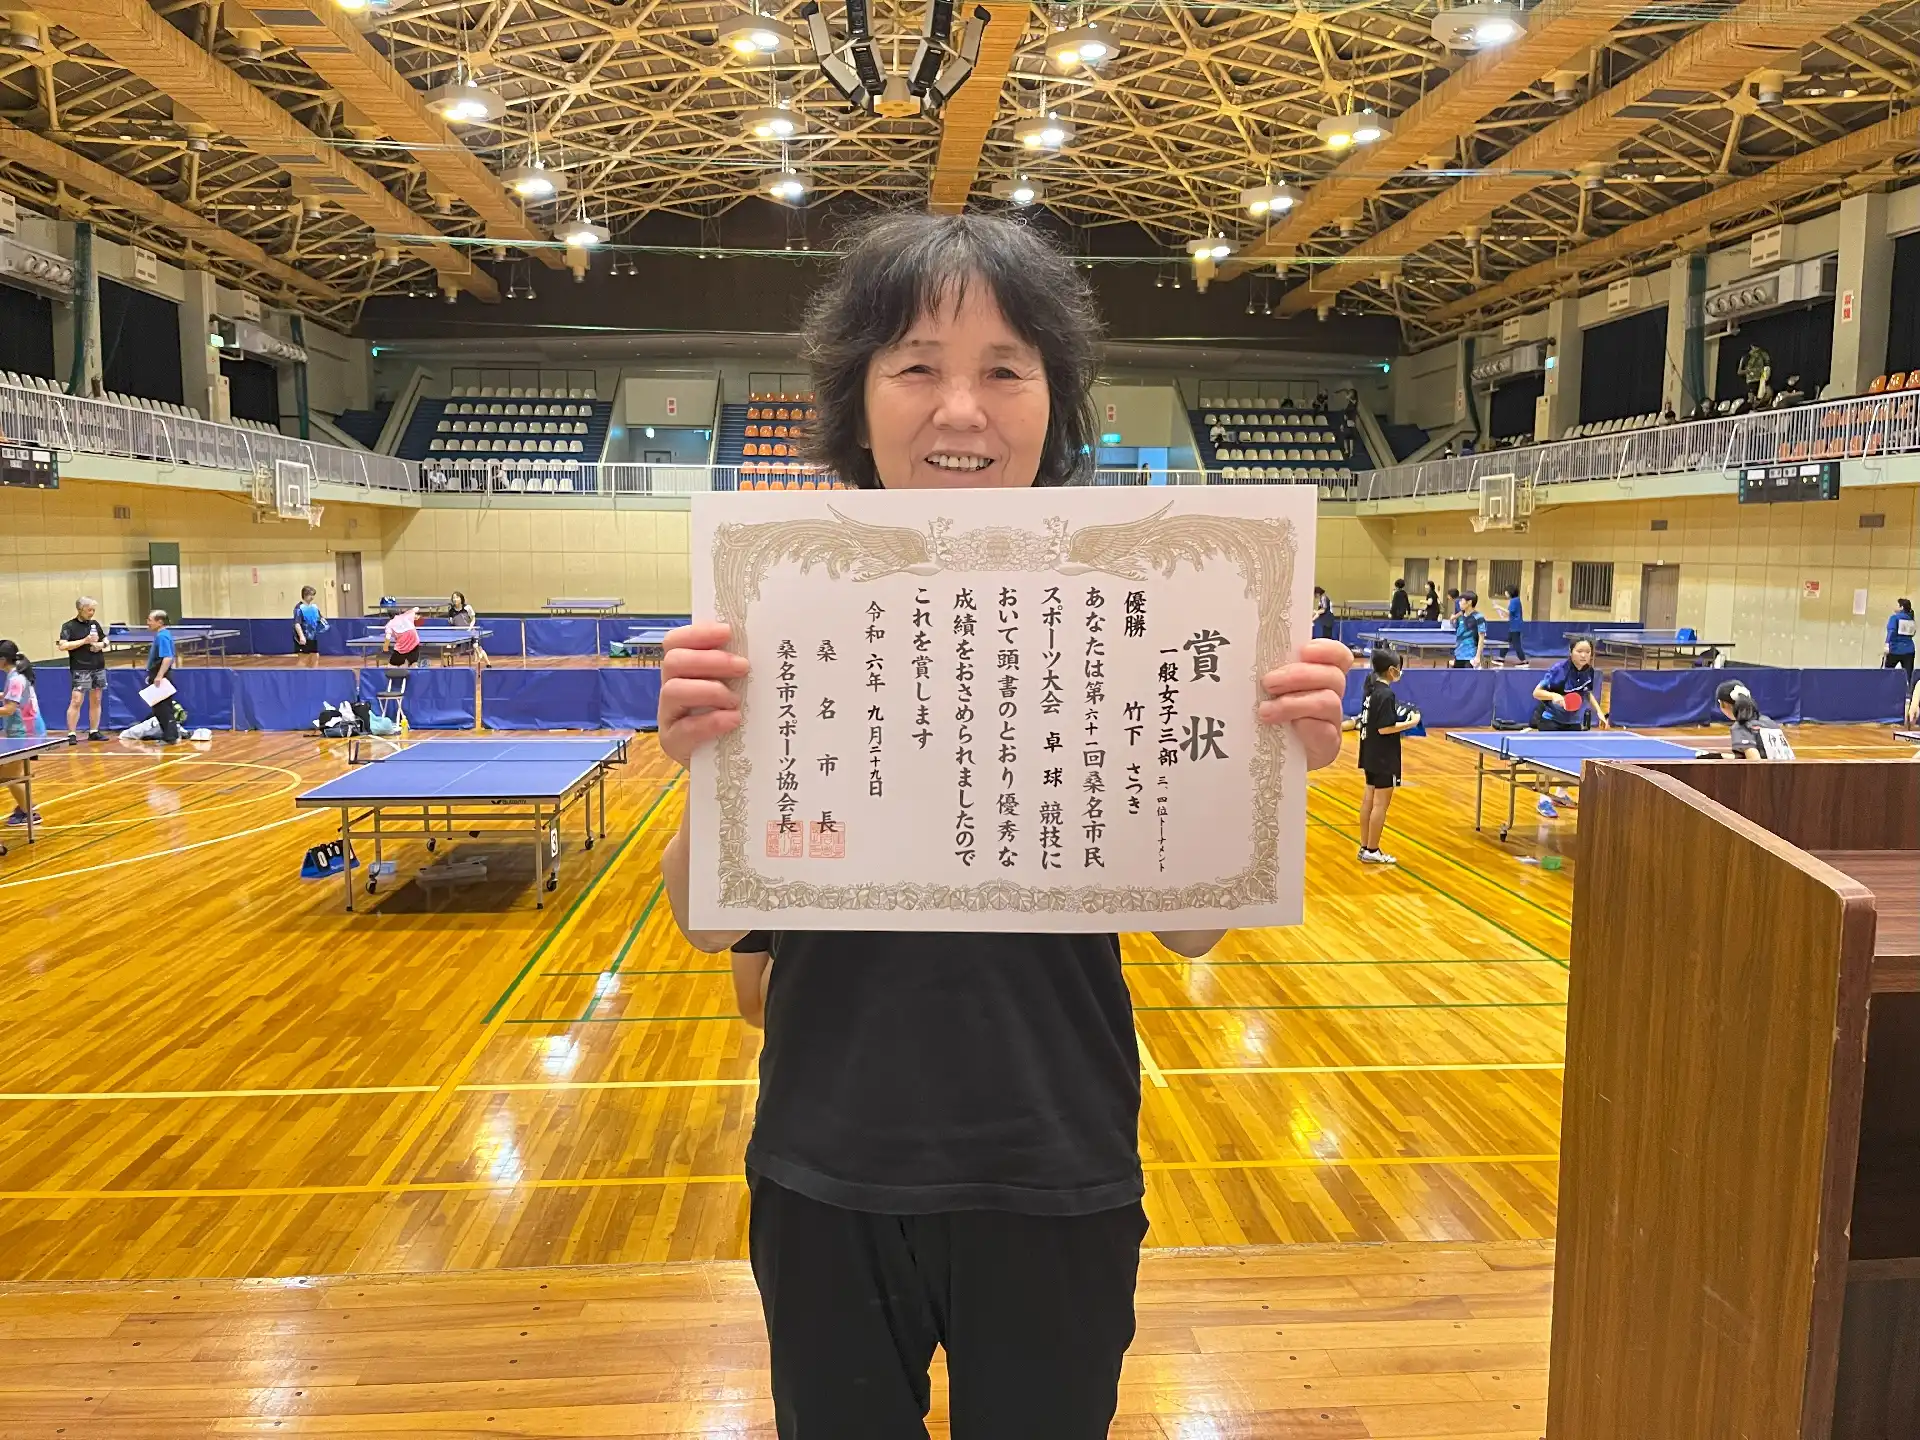 賞状
一般女子三部 三、四位トーナメント
優勝 竹下 さつき
あなたは第六十一回桑名市民
スポーツ大会 卓球 競技に
おいて頭書のとおり優秀な
成績をおさめられましたので
これを賞します
令和 六年 九月二十九日
桑名市長
桑名市スポーツ協会長
3